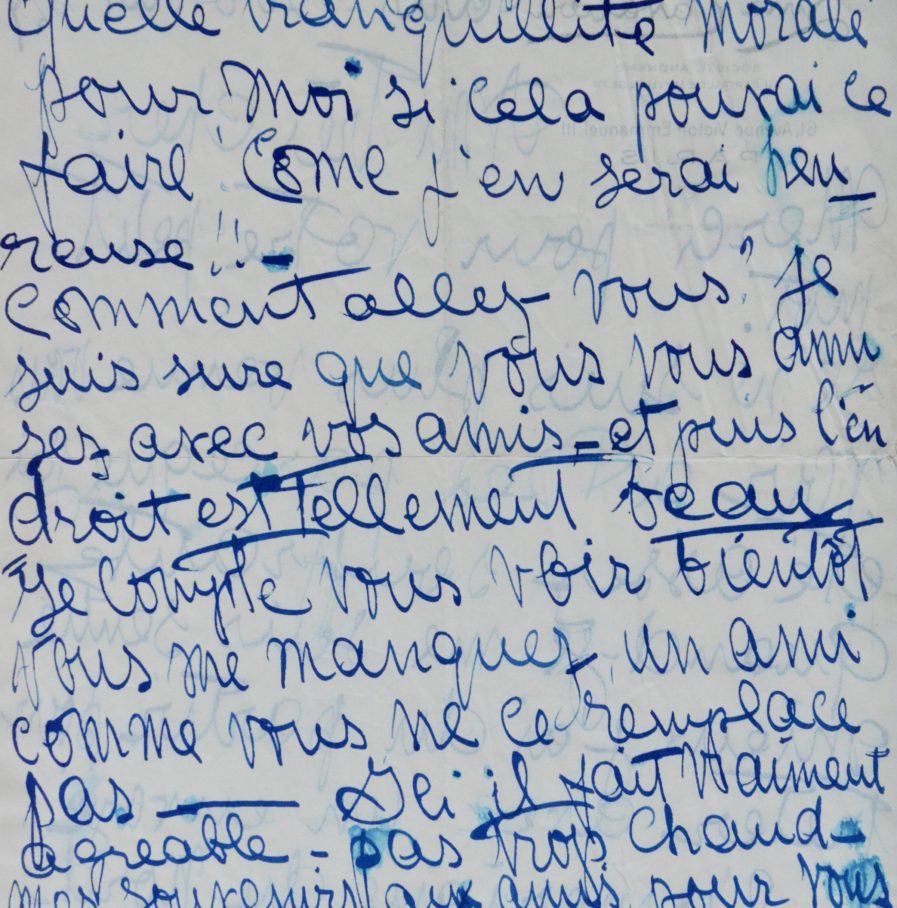 quelle tranquillité morale
pour moi si cela pouvai ce
faire Come j'en serai heu_
reuse !! -
Comment allez vous? Je
suis sure que vous vous amu
sez avec vos amis - et puis l'en
droit est tellement beau
Je compte vous voir bientôt
vous me manquez, un ami
comme vous ne ce remplace
pas — Ici il fait vraiment
agreable - pas trop chaud -
mes souvenirs aux amis, pour vous